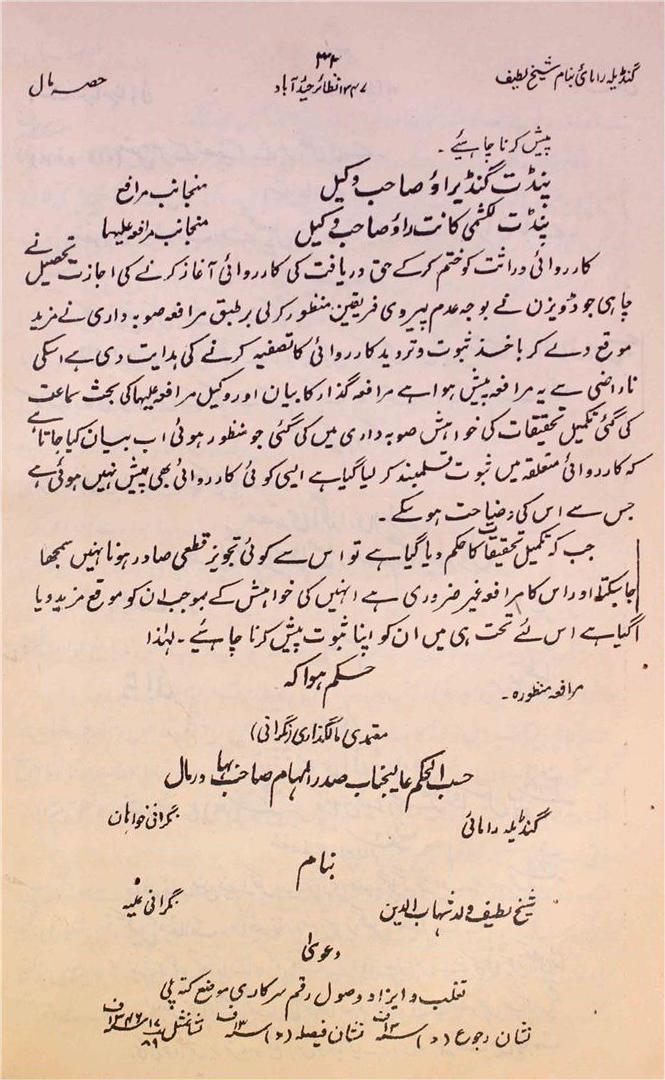 ۳۴
گنڈیلہ رامائی بنام شیخ لطیف ۱۳۴۷ نظائر حیدرآباد حصہ مال
پیش کرنا چاہیئے۔
پنڈت گنڈیراؤ صاحب وکیل منجانب مرافع
پنڈت لکشمی کانت راؤ صاحب وکیل منجانب مرافعہ علیہا
کارروائی وراثت کو ختم کر کے حق دریافت کی کارروائی آغاز کرنے کی اجازت تحصیل نے
چاہی جو ڈویزن نے بوجہ عدم پیروی فریقین منظور کر لی برطبق مرافعہ صوبہ داری نے مزید
موقع دے کر باخذ ثبوت و تردید کارروائی کا تصفیہ کرنے کی ہدایت دی ہے اسکی
ناراضی سے یہ مرافعہ پیش ہوا ہے مرافعہ گذار کا بیان اور وکیل مرافعہ علیہا کی بحث سماعت
کی گئی تکمیل تحقیقات کی خواہش صوبہ داری میں کی گئی جو منظور ہوئی اب بیان کیا جاتا ہے
کہ کارروائی متعلقہ میں ثبوت قلمبند کر لیا گیا ہے ایسی کوئی کارروائی بھی پیش نہیں ہوئی ہے
جس سے اس کی وضاحت ہو سکے۔
جب کہ تکمیل تحقیقات کا حکم دیا گیا ہے تو اس سے کوئی تجویز قطعی صادر ہونا نہیں سمجھا
جا سکتا اور اس کا مرافعہ غیر ضروری ہے انہیں کی خواہش کے بموجب ان کو موقع مزید دیا
گیا ہے اس لئے تحت ہی میں ان کو اپنا ثبوت پیش کرنا چاہیئے۔ لہٰذا
حکم ہوا کہ
مرافعہ منظورہ۔
معتمدی مالگذاری (نگرانی)
حسب الحکم عالیجناب صدر المہام صاحب بہادر مال
گنڈیلہ رامائی نگرانی خواہان
بنام
شیخ لطیف ولد شہاب الدین نگرانی علیہ
دعویٰ
تغلب و ایزاد وصول رقم سرکاری موضع کتہ پلی
نشان رجوع (د) سنہ ۱۳ف نشان فیصلہ (د) سنہ ۱۳ف نشان مثل